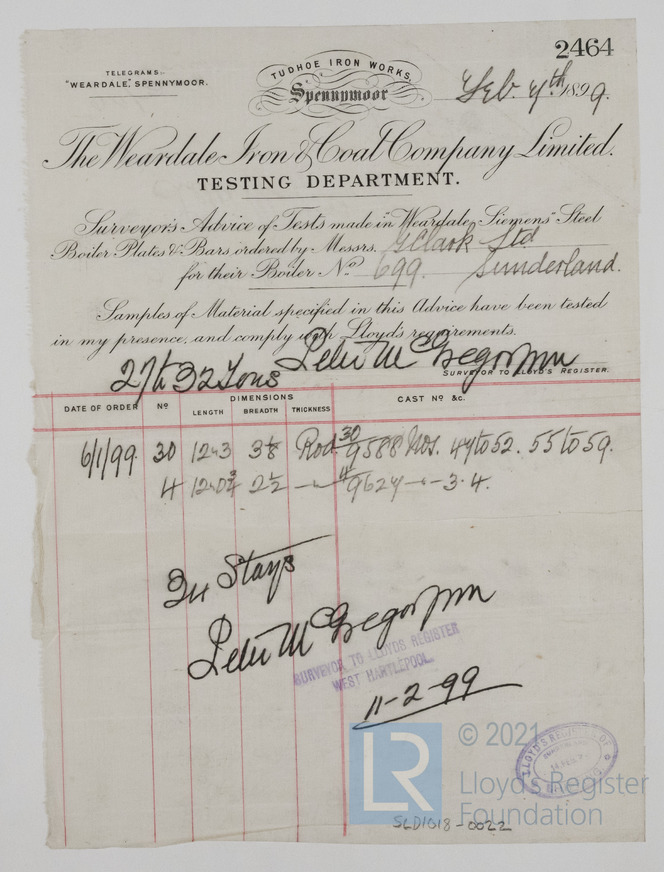 2464
TELEGRAMS:-
"WEARDALE," SPENNYMOOR.
TUDHOE IRON WORKS,
Spennymoor
Feb. 7th 1899.
The Weardale Iron & Coal Company Limited.
TESTING DEPARTMENT.
Surveyor's Advice of Tests made in "Weardale-Siemens" Steel
Boiler Plates & Bars ordered by Messrs. G Clark Ltd
for their Boiler No. 699. Sunderland.
Samples of Material specified in this Advice have been tested
in my presence, and comply with Lloyd's requirements.
27 to 32 Tons Peter McGregor
SURVEYOR TO LLOYD'S REGISTER.
DATE OF ORDER No DIMENSIONS CAST No &c.
LENGTH BREADTH THICKNESS
6/1/99. 30 12-3 3 1/8 Rod 30 9588 Nos. 47 to 52. 55 to 59.
4 2 1/2 4 9624 - 3.4.
34 Stays
Peter McGregor
SURVEYOR TO LLOYDS REGISTER
WEST HARTLEPOOL.
11-2-99
LR
© 2021
Lloyd's Register
Foundation
LLOYD'S REGISTER OF
SLD1018-0022